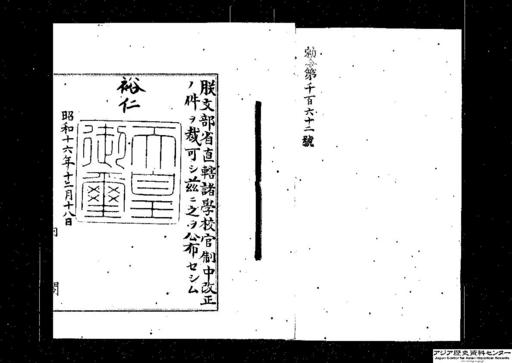 勅令第千百六十二號
朕文部省直轄諸學校官制中改正
ノ件ヲ裁可シ茲ニ之ヲ公布セシム
裕仁
天皇
御璽
昭和十六年十二月十八日
アジア歴史資料センター
Japan Center for Asian Historical Records